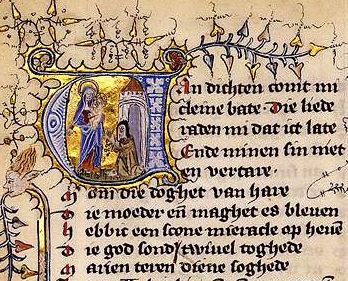 Van dichten comt mi
cleine bate · Die liede
raden mi dat ict late
Ende minen sin niet
en vertare ·
M om die doghet van hare
D ie moeder en̄ maghet es bleuen
H ebbic een scone mieracle op heuē
D ie god sond' twiuel toghede
M arien teren diene soghede